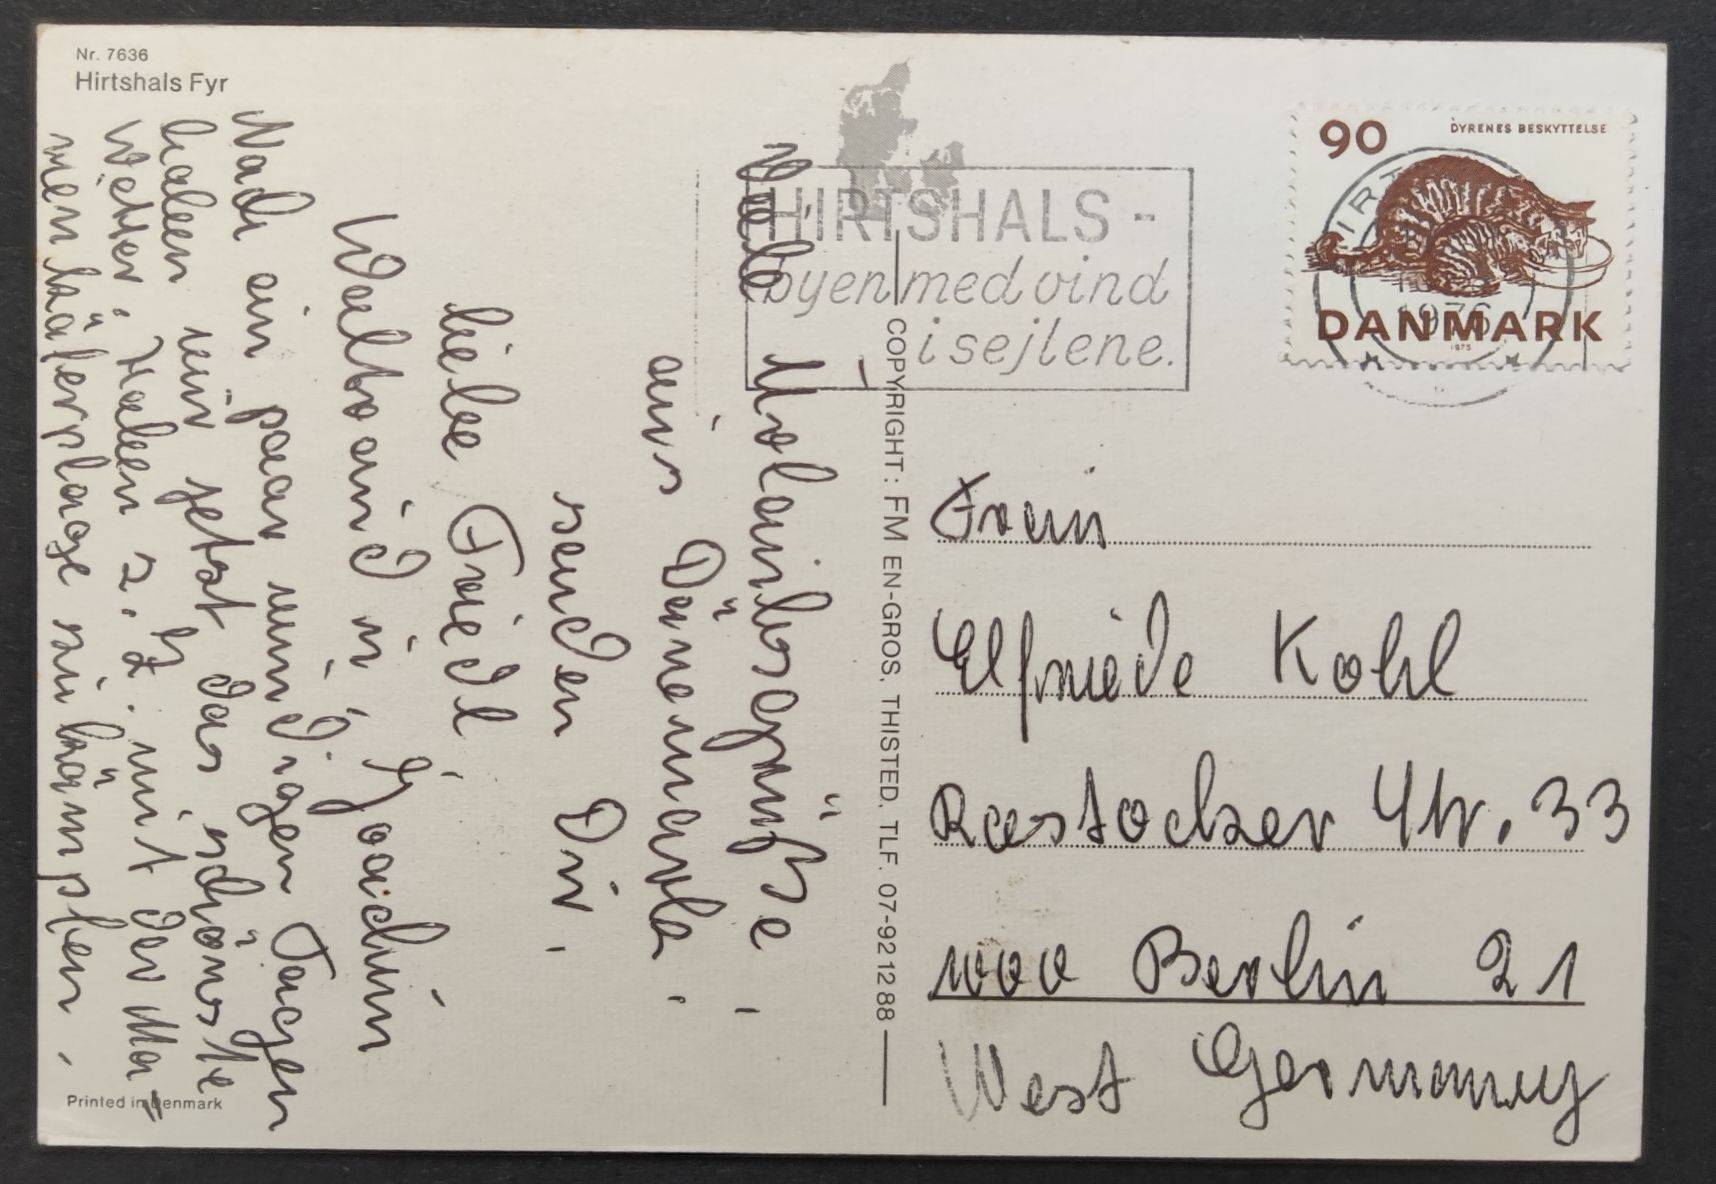 Nr. 7636
Hirtshals Fyr
Viele Urlaubsgrüße
aus Dänemark
senden Dir,
liebe Friedl
Waltraud u. Joachim
Nach ein paar windigen Tagen
haben wir jetzt das schönste
Wetter. Haben z. Z. mit der Ma-
rienkäferplage zu kämpfen.
Printed in Denmark
HIRTSHALS -
byen med vind
i sejlene.
COPYRIGHT: FM EN-GROS, THISTED. TLF. 07-92 12 88
90
DYRENES BESKYTTELSE
DANMARK
1975
Frau
Elfriede Kohl
Rostocker Str. 33
1000 Berlin 21
West Germany